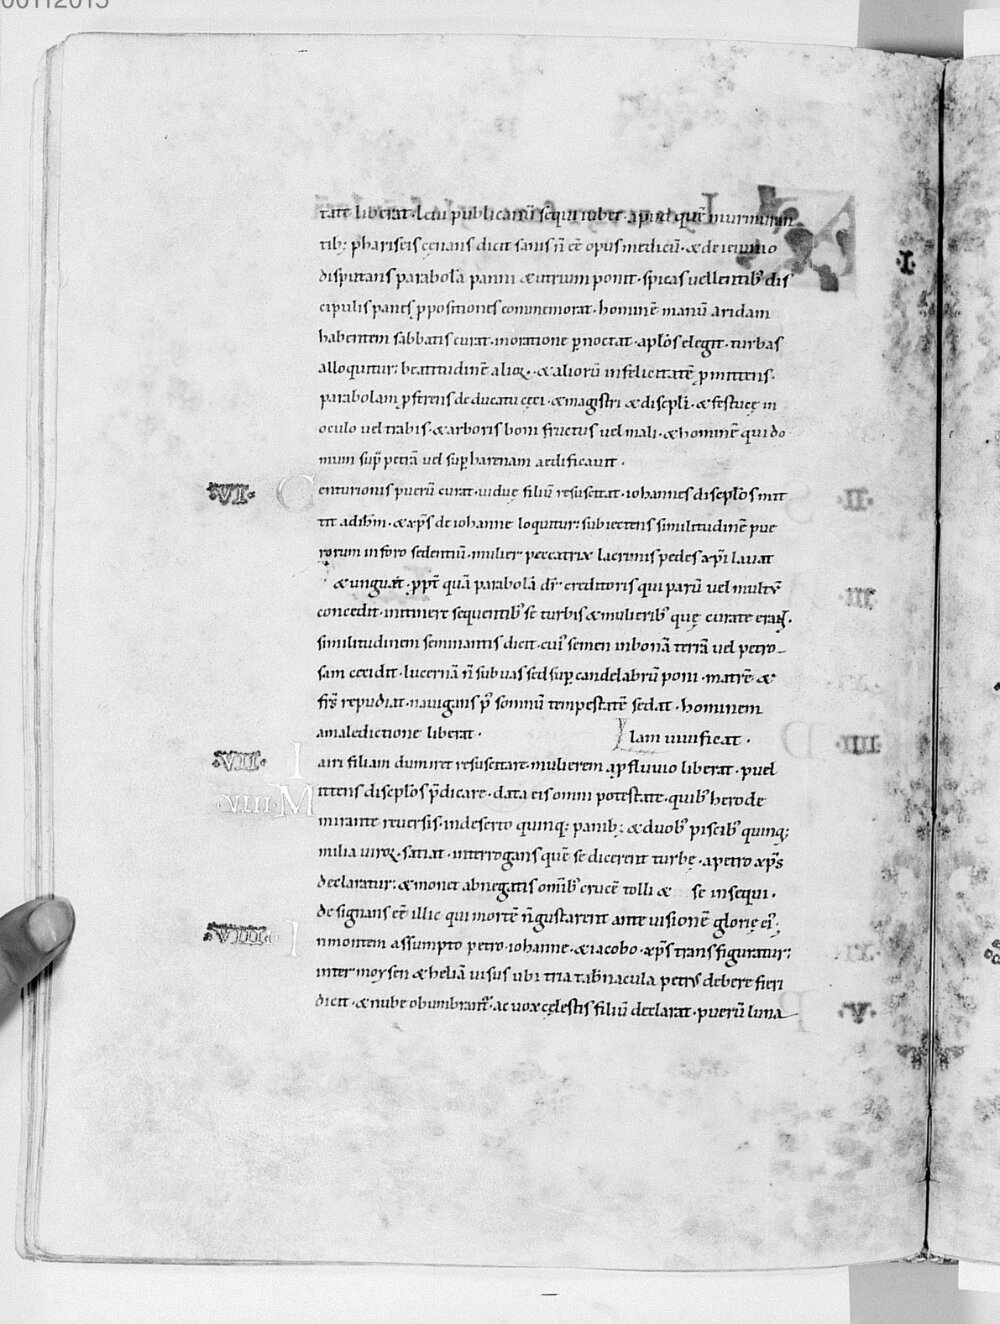 tate liberat · Leui publicanū sequi iubet · apud quē murmuran
tib; phariseis cęnans dicit sanis ñ eē opus medicū · & de ieiunio
disputans parabolā panni & utrium ponit · spicas uellentib' dis
cipulis panes ppositiones commemorat · hominē manū aridam
habentem sabbatis curat · in oratione pnoctat · aplōs elegit · turbas
alloquitur; beatitudinē alioꝝ · & aliorū infelicitatē pmittens ·
parabolam pferens de ducatu cęci · & magistri & discipli · & festucę in
oculo uel trabis · & arboris boni fructus uel mali · & hominē qui do
mum sup petrā uel sup harenam aedificauit ·
·VI· Centurionis puerū curat · uiduę filiū resuscitat · iohannes discplōs mit
tit ad ihm̄ · & xp̄s de iohanne loquitur; subiectens similitudinē pue
rorum in foro sedentiū · mulier peccatrix lacrimis pedes xp̄i lauat
& unguit · ppt quā parabolā dr̄ creditoris qui parū uel multū
concedit · in itinere sequentib' se turbis & mulierib' quę curate erant ·
similitudinem seminantis dicit · cui' semen in bonā terrā uel petro
sam cecidit · lucernā ñ sub uas sed sup candelabrū poni · matrē &
frs̄ repudiat · nauigans p' somnū tempestatē sedat · hominem
a maledictione liberat · lam uiuificat ·
·VII· Iairi filiam dum iret resuscitare · mulierem a pfluuio liberat · puel
·VIII· Mittens discplōs p̄dicare · data eis omni potestate · quib' herode
mirante reuersis · in deserto quinq; panib; & duob' piscib' quinq;
milia uiroꝝ · satiat · interrogans quē se dicerent turbę · a petro xp̄s
declaratur; & monet abnegatis omīb' crucē tolli & se insequi ·
designans eē illic qui mortē ñ gustarent ante uisionē glorię ei';
·VIIII· In montem assumpto petro · iohanne · & iacobo · xp̄s transfiguratur;
inter moysen & heliā uisus ubi tria tab̄nacula petrs debere fieri
dicit · & nube obumbrant' · ac uox cęlestis filiū declarat · puerū luna